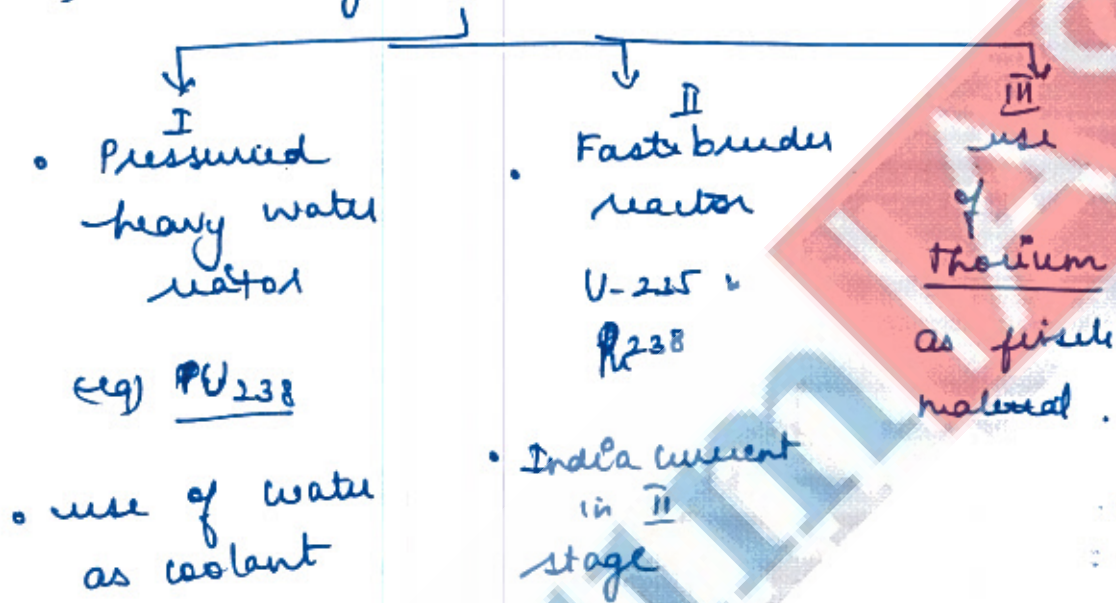 I
• Pressuried
heavy water
reator
(eg) PU238
• use of water
as coolant
II
• Fastebreeder
reactor
U-235
238
• India current
in II
stage
III
use
of
Thorium
as
material.
IAS